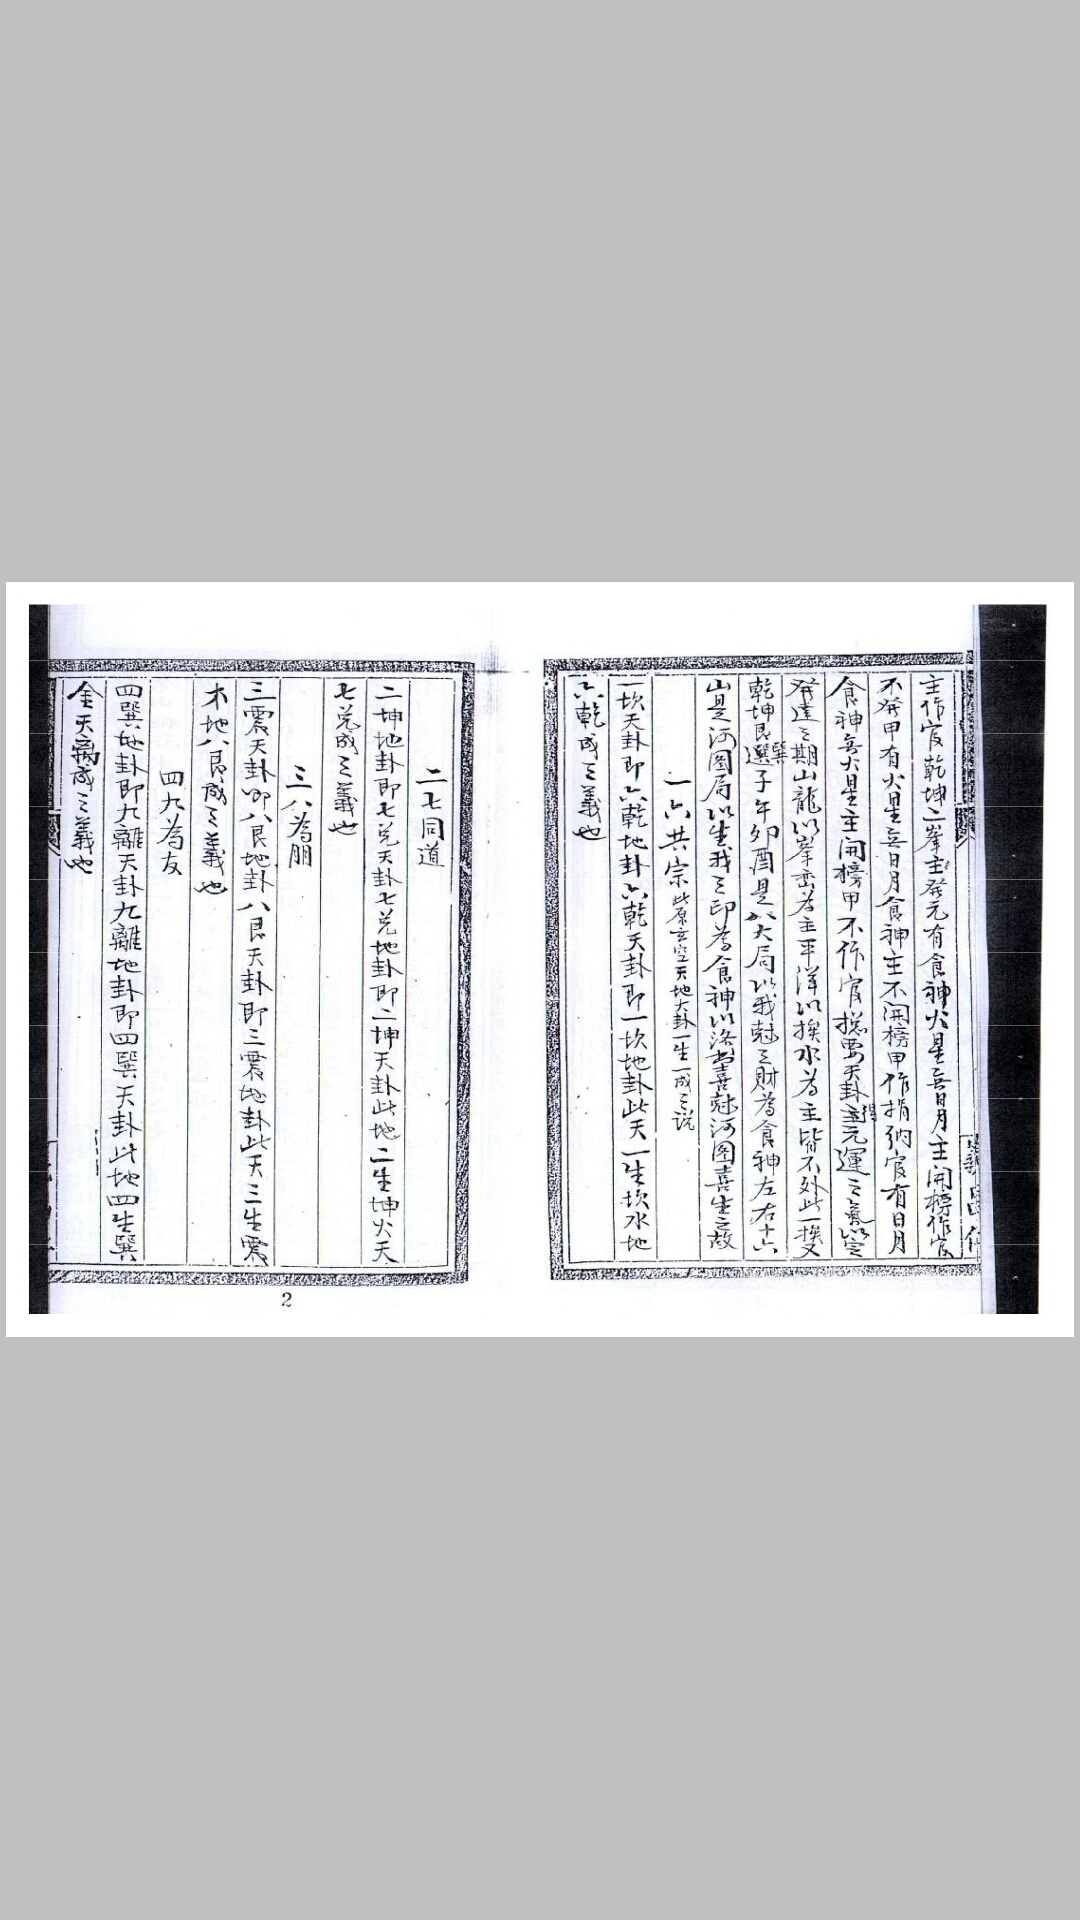 主作官乾坤二峯主發元有食神火星無日月主開榜作官
不發甲有火星無日月食神主不開榜甲作捐納官有日月
食神無火星主開榜甲不作官揔要天卦主得元運之氣以定
發達之期山龍以峯巒為主平洋以挨水為主皆不外此一挨又
乾坤艮巽選子午卯酉是八大局以我尅之財為食神左右十六
山是河圖局以生我之印為食神以洛書喜尅河圖喜生之故
一六共宗 此原玄空天地大卦一生一成之說
一坎天卦即六乾地卦六乾天卦即一坎地卦此天一生坎水地
六乾成之義也
二七同道
二坤地卦即七兌天卦七兌地卦即二坤天卦此地二生坤火天
七兌成之義也
三八為朋
三震天卦即八艮地卦八艮天卦即三震地卦此天三生震
木地八艮成之義也
四九為友
四巽地卦即九離天卦九離地卦即四巽天卦此地四生巽
金天九離成之義也
2